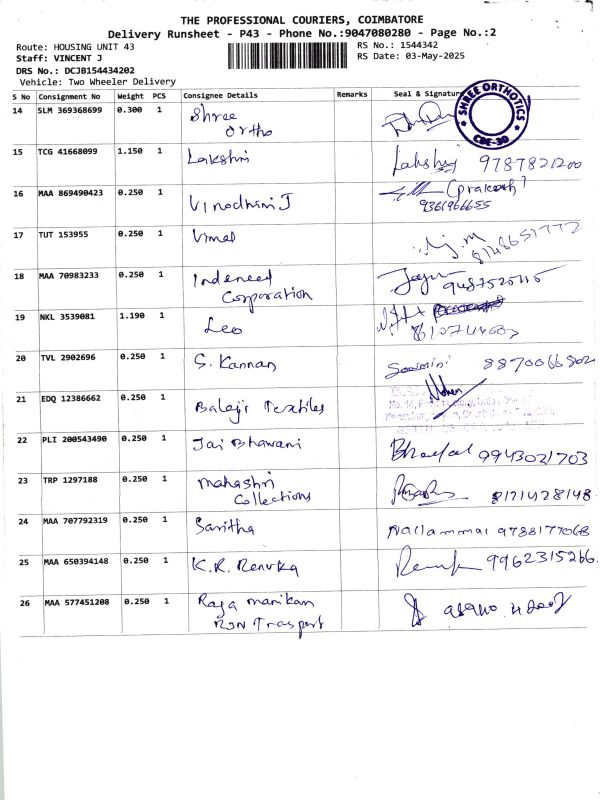 THE PROFESSIONAL COURIERS, COIMBATORE
Delivery Runsheet - P43 - Phone No.:9047080280 - Page No.:2
Route: HOUSING UNIT 43
Staff: VINCENT J
DRS No.: DCJB154434202
Vehicle: Two Wheeler Delivery
RS No.: 1544342
RS Date: 03-May-2025
S No Consignment No Weight PCS Consignee Details Remarks Seal & Signature
14 SLM 369368699 0.300 1 Shree
Ortho
SHREE ORTHOTICS
CBE-30
15 TCG 41668099 1.150 1 Lakshmi 9787821200
16 MAA 869490423 0.250 1 Vinodhini J (prakash)
9361966655
17 TUT 153955 0.250 1 Vimal
18 MAA 70983233 0.250 1 Indeneed
Corporation
9487525115
19 NKL 3539081 1.190 1 Leo
20 TVL 2902696 0.250 1 S. Kannan Sowmini 8870066802
21 EDQ 12386662 0.250 1 Balaji Textiles
22 PLI 200543490 0.250 1 Jai Bhawani 9943021703
23 TRP 1297188 0.250 1 Mahashri
Collections
24 MAA 707792319 0.250 1 Saritha Nallammai 9788177068
25 MAA 650394148 0.250 1 K.R. Renuka 9962315266
26 MAA 577451208 0.250 1 Raja Manikam
RJN Trasport